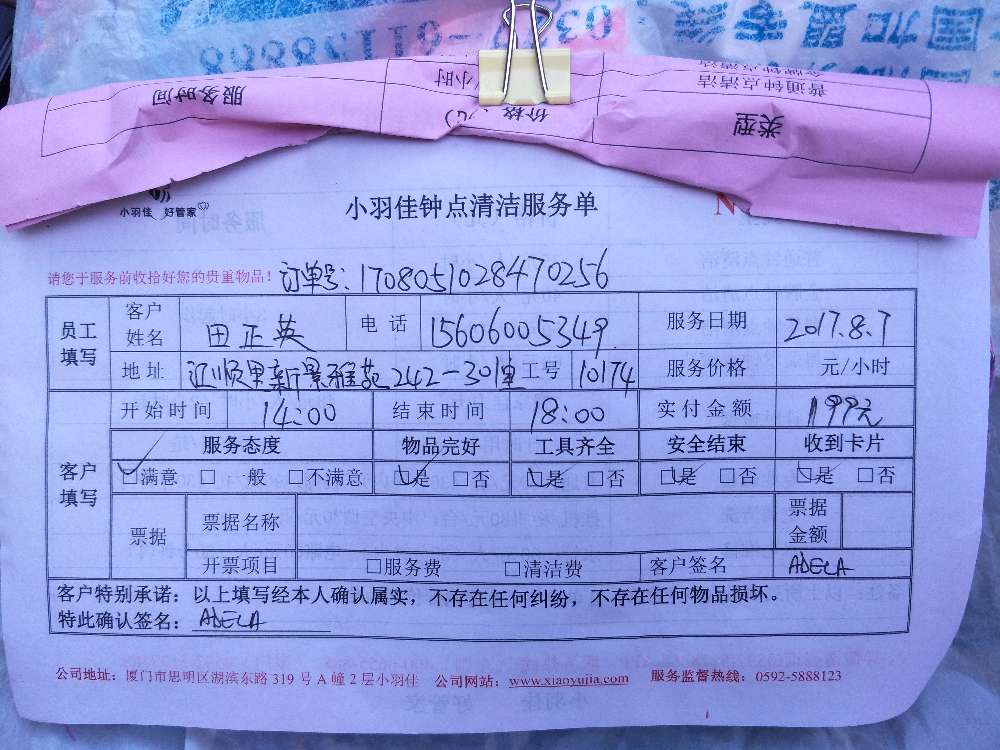 国加盟专线
0592-5118888
服务时间
小时
价格
类型
普通钟点清洁
金牌钟点清洁
小羽佳 好管家
小羽佳钟点清洁服务单
N
请您于服务前收拾好您的贵重物品！ 订单号：1708051028470256
员工填写 客户姓名 田正英 电话 15606005349 服务日期 2017.8.7
地址 江顺里新景雅苑242-301室 工号 10174 服务价格 元/小时
客户填写 开始时间 14:00 结束时间 18:00 实付金额 199元
服务态度 物品完好 工具齐全 安全结束 收到卡片
☑满意 □一般 □不满意 ☑是 □否 ☑是 □否 ☑是 □否 ☑是 □否
票据 票据名称 票据金额
开票项目 □服务费 □清洁费 客户签名 ADELA
客户特别承诺：以上填写经本人确认属实，不存在任何纠纷，不存在任何物品损坏。
特此确认签名：ADELA
公司地址：厦门市思明区湖滨东路 319 号 A 幢 2 层小羽佳 公司网站：www.xiaoyujia.com 服务监督热线：0592-5888123